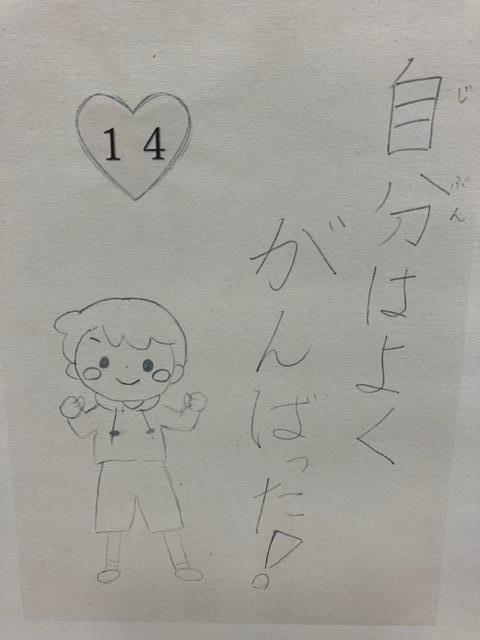 自分はよく
じぶん
がんばった!
14